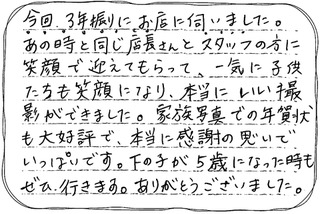 今回、3年振りにお店に伺いました。
あの時と同じ店長さんとスタッフの方に
笑顔で迎えてもらって、一気に子供
たちも笑顔になり、本当にいい撮
影ができました。家族写真での年賀状
も大好評で、本当に感謝の思いで
いっぱいです。下の子が5歳になった時も
ぜひ行きます。ありがとうございました。